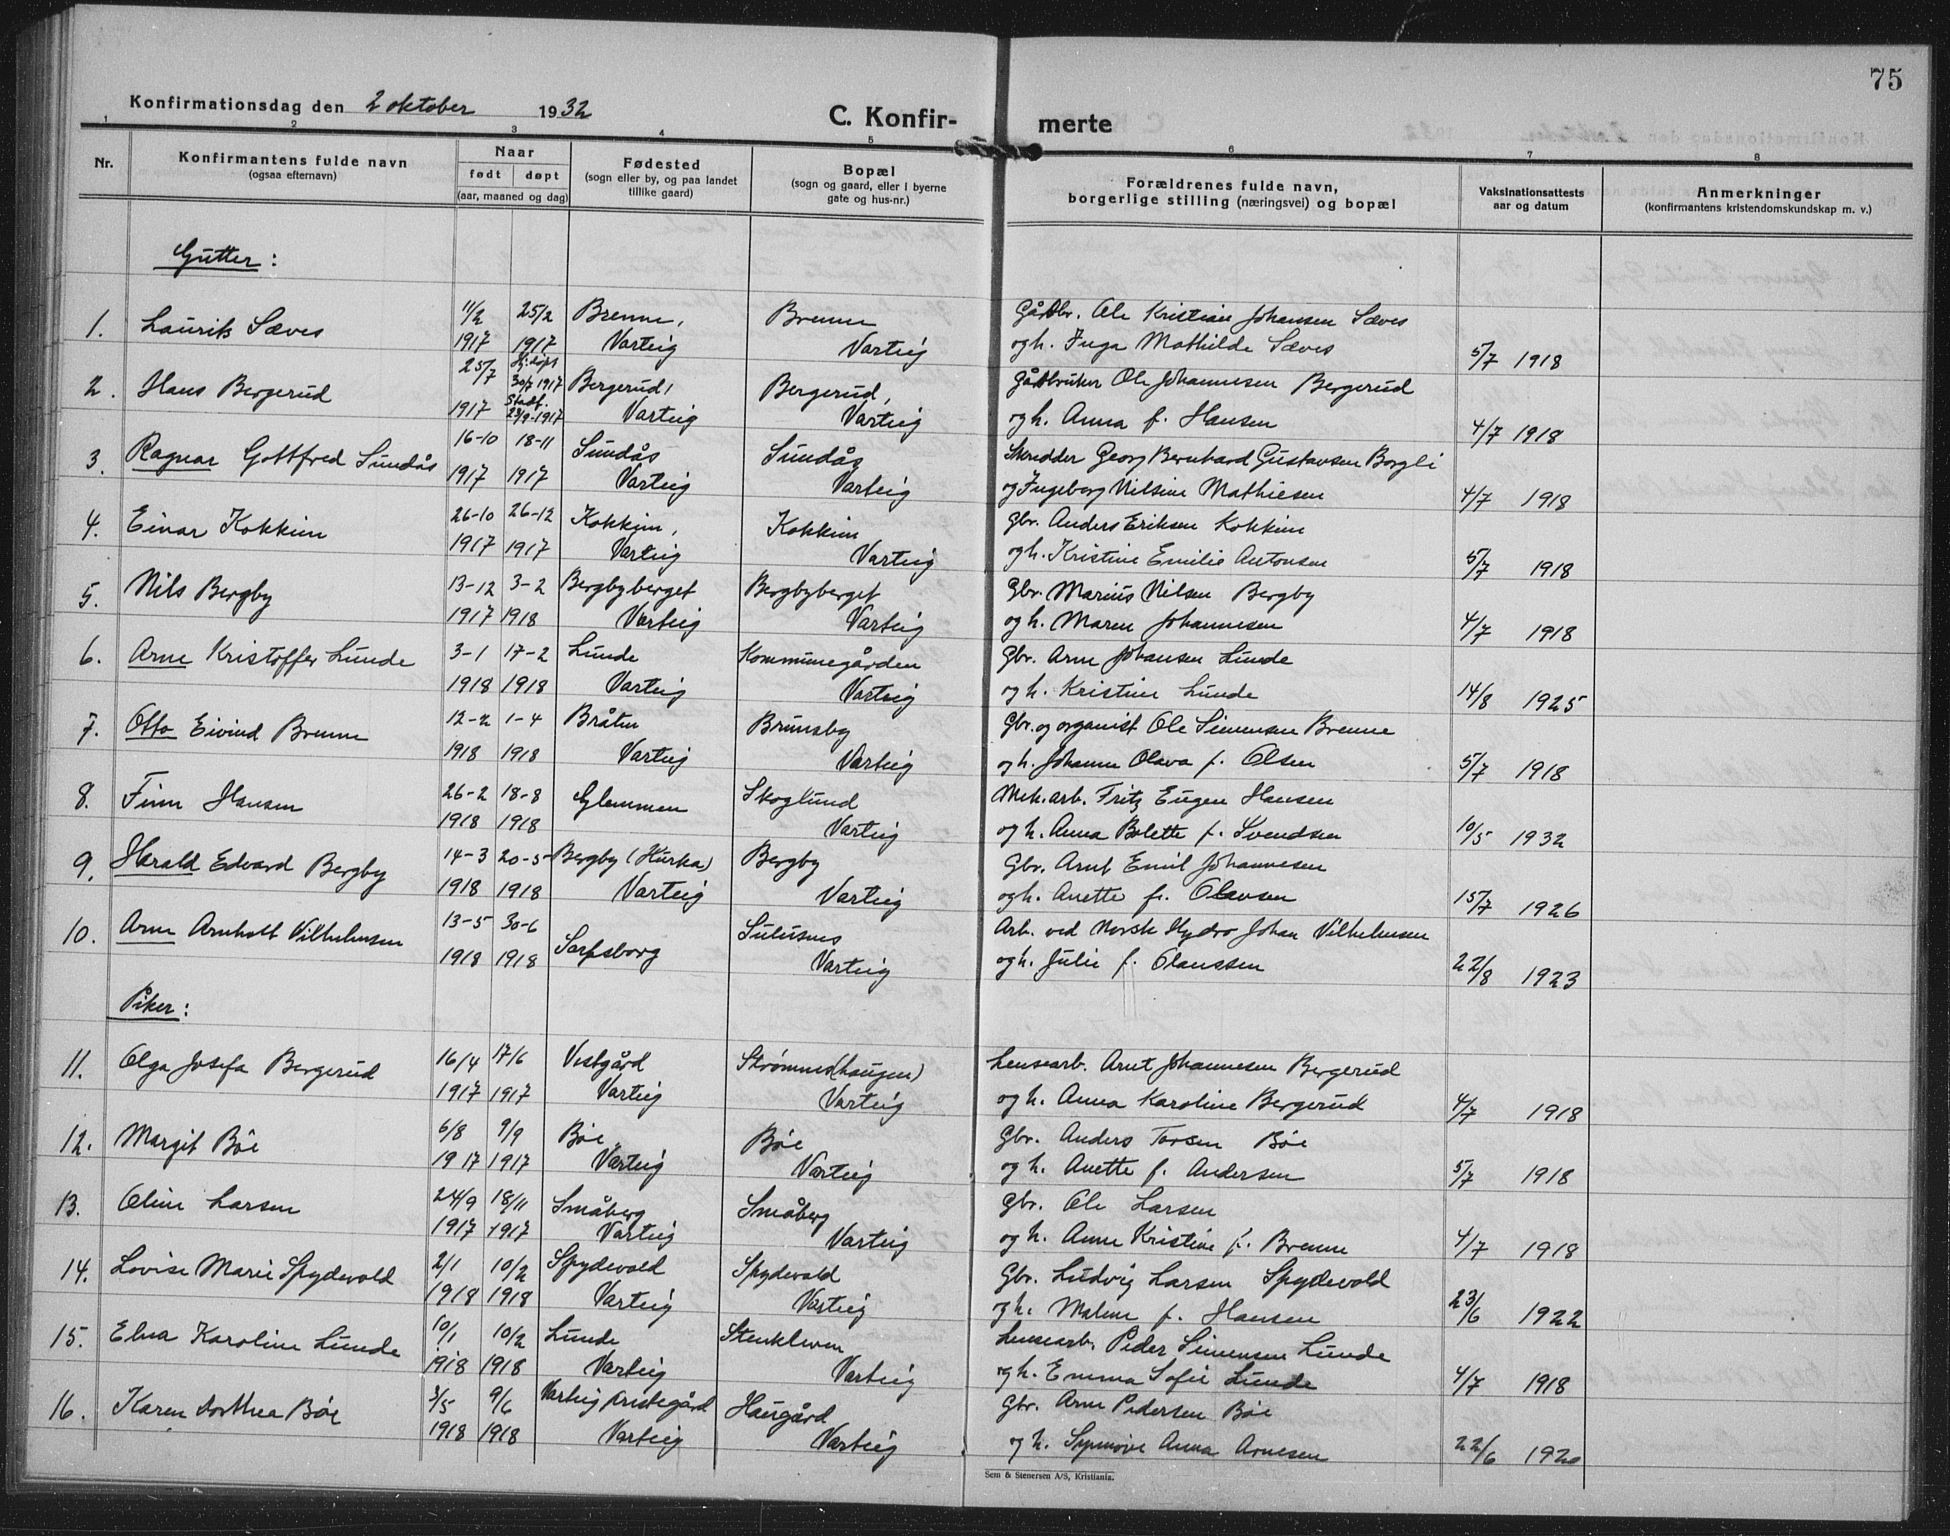 75
Konfirmationsdag den 2 oktober 1932
C. Konfir- merte
1 2 3 4 5 6 7 8
Nr.
Konfirmantens fulde navn
(ogsaa efternavn)
Naar
født døpt
(aar, maaned og dag)
Fødested
(sogn eller by, og paa landet
tillike gaard)
Bopæl
(sogn og gaard, eller i byerne
gate og hus-nr.)
Forældrenes fulde navn,
borgerlige stilling (næringsvei) og bopæl
Vaksinationsattests
aar og datum
Anmerkninger
(konfirmantens kristendomskundskap m. v.)
Gutter:
1. Laurits Sæves 11/2 25/2 Brenne, Brenne Gårdbr. Ole Kristian Johansen Sæves
1917 1917 Varteig Varteig og h. Inga Mathilde Sæves 5/7 1918
2. Hans Bergerud 25/7 Hj.døpt 30/7 1917 Bergerud, Bergerud, Gårdbruker Ole Johannesen Bergerud
1917 Stadf. 23/9-1917 Varteig Varteig og h. Anna f. Hansen 4/7 1918
3. Ragnar Gottfred Sundås 16-10 18-11 Sundås Sundås Skredder Georg Bernhard Gustavsen Borgli
1917 1917 Varteig Varteig og Ingeborg Nilsine Mathiesen 4/7 1918
4. Einar Kokkim 26-10 26-12 Kokkim, Kokkim Gbr. Anders Eriksen Kokkim
1917 1917 Varteig Varteig og h. Kristine Emilie Antonsen 5/7 1918
5. Nils Bergby 13-12 3-2 Bergbyberget Bergbyberget Gbr. Marius Nilsen Bergby
1917 1918 Varteig Varteig og h. Maren Johannesen 4/7 1918
6. Arne Kristoffer Lunde 3-1 17-2 Lunde Kommunegården Gbr. Arne Johansen Lunde
1918 1918 Varteig Varteig og h. Kristine Lunde 14/8 1925
7. Otto Eivind Brenne 12-2 1-4 Bråten Brunsby Gbr. og organist Ole Simensen Brenne
1918 1918 Varteig Varteig og h. Johanne Olava f. Olsen 5/7 1918
8. Finn Hansen 26-2 18-8 Glemmen Skoglund Mek.arb. Fritz Eugen Hansen
1918 1918 Varteig og h. Anna Bolette f. Svendsen 10/5 1932
9. Harald Edvard Bergby 14-3 20-5 Bergby (Hurka) Bergby Gbr. Arnt Emil Johannesen
1918 1918 Varteig Varteig og h. Anette f. Olavsen 15/7 1926
10. Arne Arnholt Vilhelmsen 13-5 30-6 Sarpsborg Sulusnes Arb. ved Norsk Hydro Johan Vilhelmsen
1918 1918 Varteig og h. Julie f. Olaussen 22/8 1923
Piker:
11. Olga Josefa Bergerud 16/4 17/6 Vestgård Strømnes (haugen) Lensearb. Arnt Johannesen Bergerud
1917 1917 Varteig Varteig og h. Anna Karoline Bergerud 4/7 1918
12. Margit Bøe 6/8 9/9 Bøe Bøe Gbr. Anders Torsen Bøe
1917 1917 Varteig Varteig og h. Anette f. Andersen 5/7 1918
13. Oline Larsen 24/9 18/11 Småberg Småberg Gbr. Ole Larsen
1917 1917 Varteig Varteig og h. Anne Kristine f. Brenne 4/7 1918
14. Lovise Marie Spydevold 2/1 10/2 Spydevold Spydevold Gbr. Ludvig Larsen Spydevold
1918 1918 Varteig Varteig og h. Malene f. Hansen 23/6 1922
15. Elna Karoline Lunde 10/1 10/2 Lunde Stenkleven Lensearb. Peder Simensen Lunde
1918 1918 Varteig Varteig og h. Emma Sofie Lunde 4/7 1918
16. Karen Dorthea Bøe 3/5 9/6 Varteig Prestegård Haugård Gbr. Arne Pedersen Bøe
1918 1918 Varteig Varteig og h. Synnøve Anna Arnesen 22/6 1920
Sem & Stenersen A/S, Kristiania.